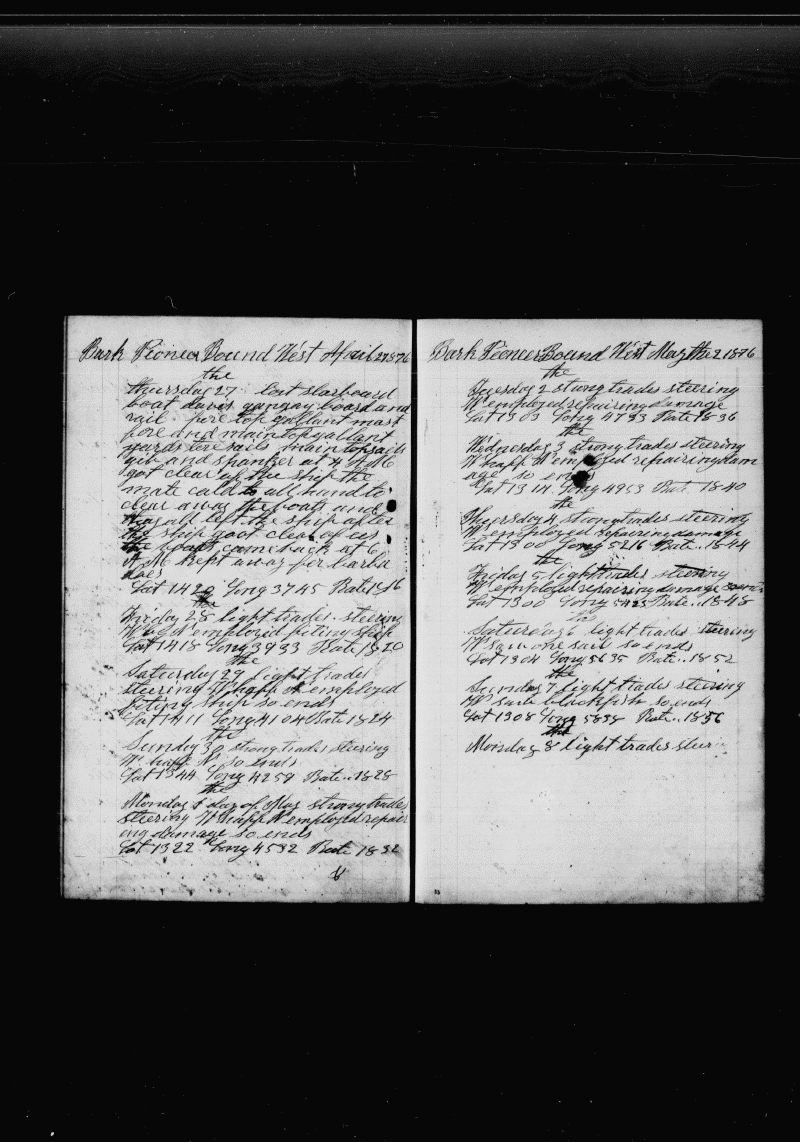 Bark Pioneer Bound West April 27 1876
the
Thuersday 27 lost starboard
boat davis gangay board and
rail fore top gallant mast
fore and main topgallant
yards fore sail main topsails
gib and spanker at 4 A M
got clear of the ship the
mate cald to all hand to
clear away the boats and
they all left the ship after
the ship goot clear of us
the boats came back at 6
A M kept away for barba
does
Lat 1420 Long 3745 Rate 1816
the
Friday 28 light trades steering
W employed fiting ship
Lat 1418 Long 3933 Rate 1820
the
Saturday 29 light trades
steering W employed
fiting ship so ends
Lat 1411 Long 4104 Rate 1824
the
Sunday 30 strong trades steering
W half N so ends
Lat 1344 Long 4259 Rate 1828
the
Monday 1 day of May strong trades
steering W half N employed repair
ing damage so ends
Lat 1322 Long 4532 Rate 1832
Bark Pioneer Bound West May the 2 1876
the
Tuesday 2 stong trades steering
W employed repairing damage
Lat 1303 Long 4733 Rate 1836
the
Widnesday 3 strong trades steering
W half N employed repairing dam
age so ends
Lat 1314 Long 4953 Rate 1840
the
Thuersday 4 strong trades steering
W employed reparing damage
Lat 1300 Long 5216 Rate 1844
the
Friday 5 light trades steering
W employed repairing damage so ends
Lat 1300 Long 5425 Rate 1848
the
Saturday 6 light trades steering
W saw one sail so ends
Lat 1304 Long 5635 Rate 1852
the
Sunday 7 light trades steering
W saw blackfish so ends
Lat 1308 Long 5838 Rate 1856
the
Monday 8 light trades steer